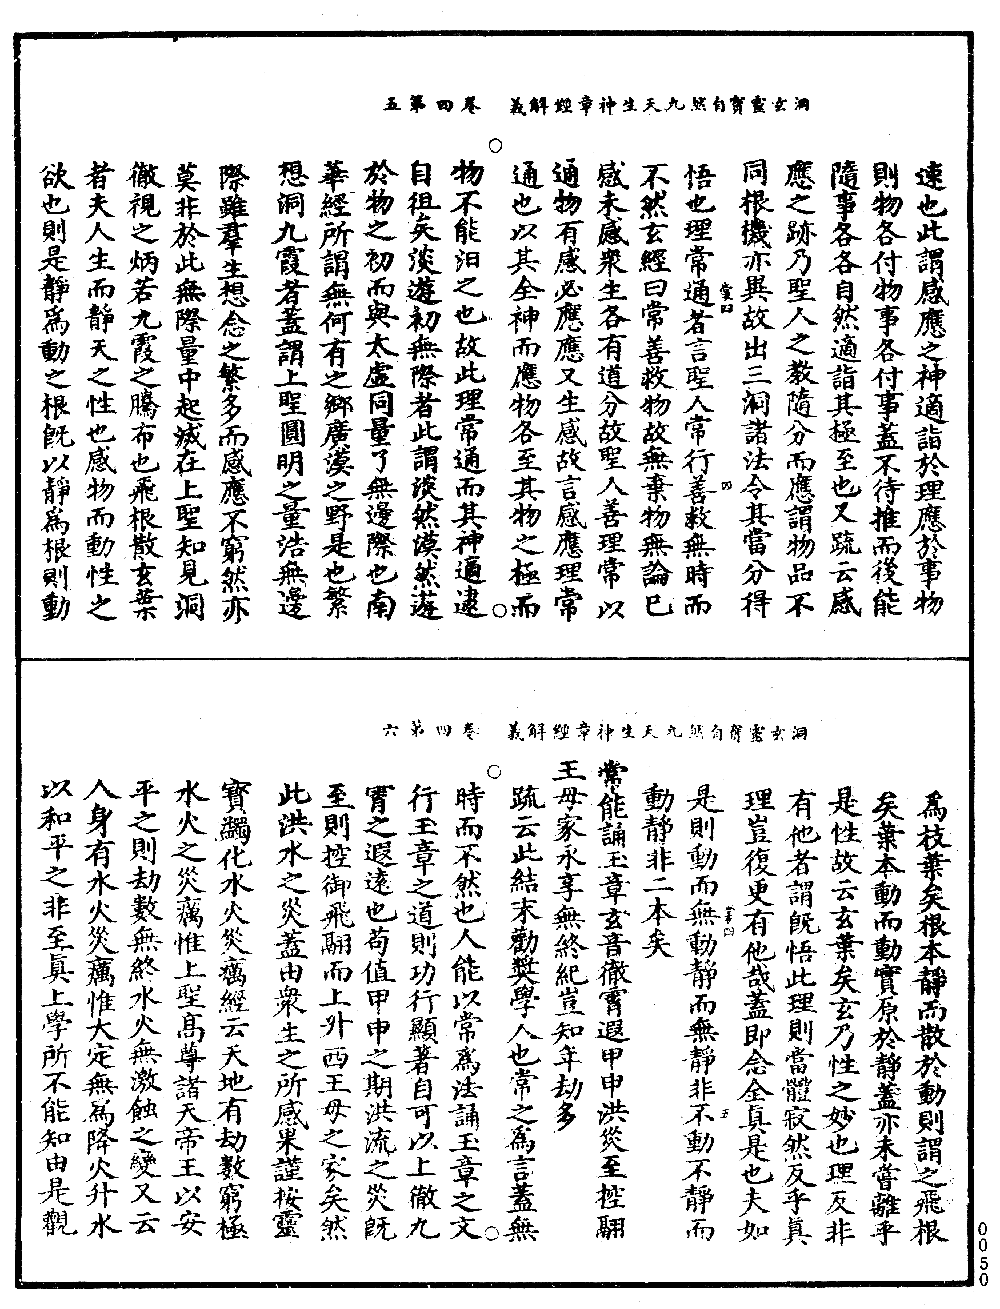 洞玄靈寶自然九天生神章經解義　卷四第五
速也此謂感應之神適詣於理應於事物
則物各付物事各付事蓋不待推而後能
隨事各各自然適詣其極至也又疏云感
應之跡乃聖人之教隨分而應謂物品不
同根機亦異故出三洞諸法令其當分得
悟也理常通者言聖人常行善救無時而
不然玄經曰常善救物故無棄物無論已
感未感衆生各有道分故聖人善理常以
通物有感必應應又生感故言感應理常
通也以其全神而應物各至其物之極而
物不能汩之也故此理常通而其神適逮
自徂矣淡遊初無際者此謂淡然漠然遊
於物之初而與太虛同量了無邊際也南
華經所謂無何有之鄉廣漠之野是也繁
想洞九霞者蓋謂上聖圓明之量浩無邊
際雖羣生想念之繁多而感應不窮然亦
莫非於此無際量中起滅在上聖知見洞
徹視之炳若九霞之騰布也飛根散玄葉
者夫人生而靜天之性也感物而動性之
欲也則是靜爲動之根旣以靜爲根則動
洞玄靈寶自然九天生神章經解義　卷四第六
爲枝葉矣根本靜而散於動則謂之飛根
矣葉本動而動實原於靜蓋亦未嘗離乎
是性故云玄葉矣玄乃性之妙也理反非
有他者謂旣悟此理則當體寂然反乎真
理豈復更有他哉蓋即念全真是也夫如
是則動而無動靜而無靜非不動不靜而
動靜非二本矣
常能誦玉章玄音徹霄遐甲申洪災至控翮
王母家永享無終紀豈知年劫多
疏云此結末勸奬學人也常之爲言蓋無
時而不然也人能以常爲法誦玉章之文
行玉章之道則功行顯著自可以上徹九
霄之遐遠也苟值甲申之期洪流之災旣
至則控御飛翮而上升西王母之家矣然
此洪水之災蓋由衆生之所感果謹按靈
寶蠲化水火災癘經云天地有劫數窮極
水火之災癘惟上聖高尊諸天帝王以安
平之則劫數無終水火無激蝕之變又云
人身有水火災癘惟大定無爲降火升水
以和平之非至眞上學所不能知由是觀
0050